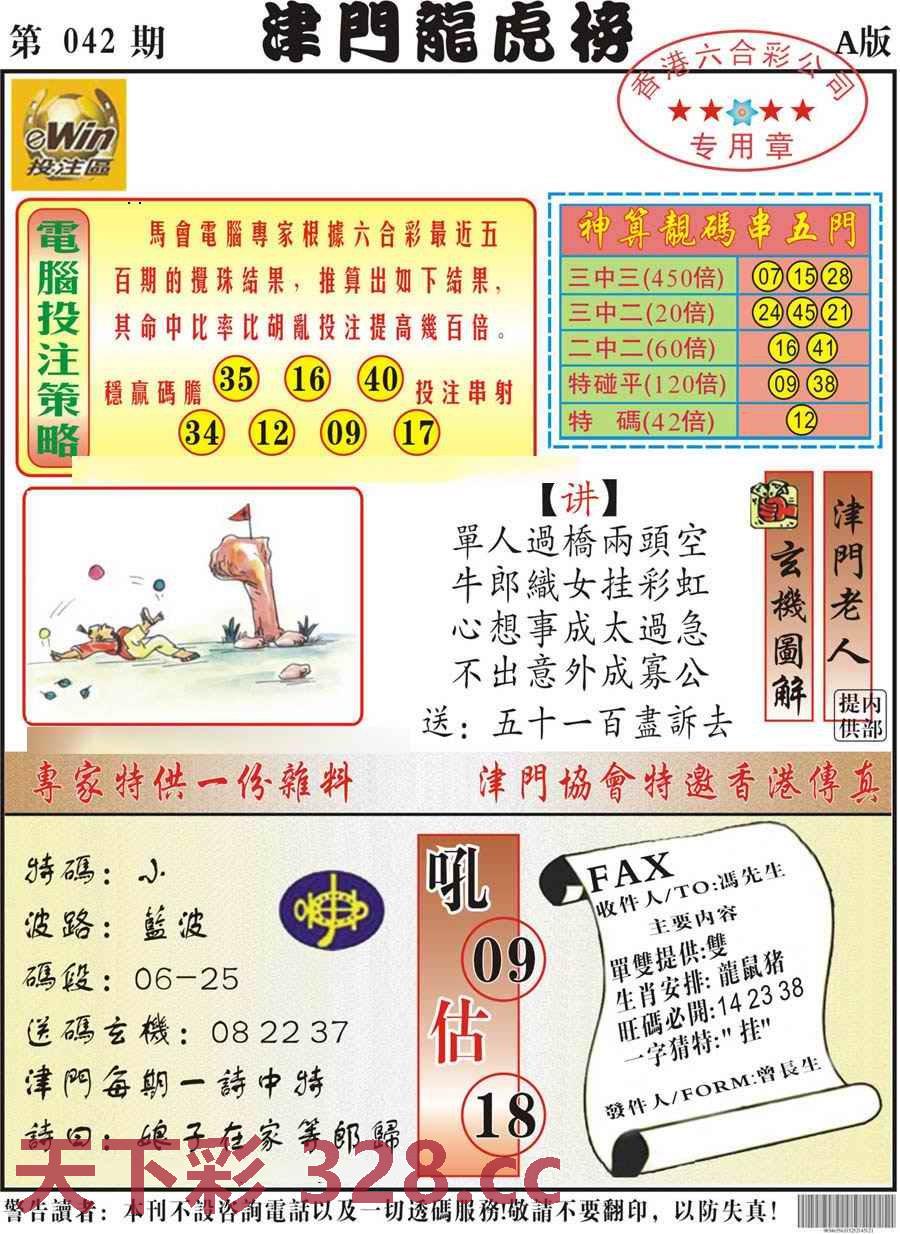 第 042 期
津門龍虎榜
A版
香港六合彩公司
专用章
eWin
投注區
電腦投注策略
馬會電腦專家根據六合彩最近五
百期的攪珠結果，推算出如下結果，
其命中比率比胡亂投注提高幾百倍。
穩贏碼膽 35 16 40 投注串射
34 12 09 17
神算靚碼串五門
三中三(450倍) 07 15 28
三中二(20倍) 24 45 21
二中二(60倍) 16 41
特碰平(120倍) 09 38
特 碼(42倍) 12
【讲】
單人過橋兩頭空
牛郎織女挂彩虹
心想事成太過急
不出意外成寡公
送：五十一百盡訴去
玄機圖解
津門老人
内部提供
專家特供一份雜料
津門協會特邀香港傳真
特碼：小
波路：藍波
碼段：06-25
送碼玄機：08 22 37
津門每期一詩中特
詩曰：娘子在家等郎歸
吼
09
估
18
FAX
收件人/TO:馮先生
主要内容
單雙提供:雙
生肖安排:龍鼠猪
旺碼必開:14 23 38
一字猜特:"挂"
發件人/FORM:曾長生
天下彩 328.cc
警告讀者：本刊不設咨詢電話以及一切透碼服務!敬請不要翻印，以防失真!